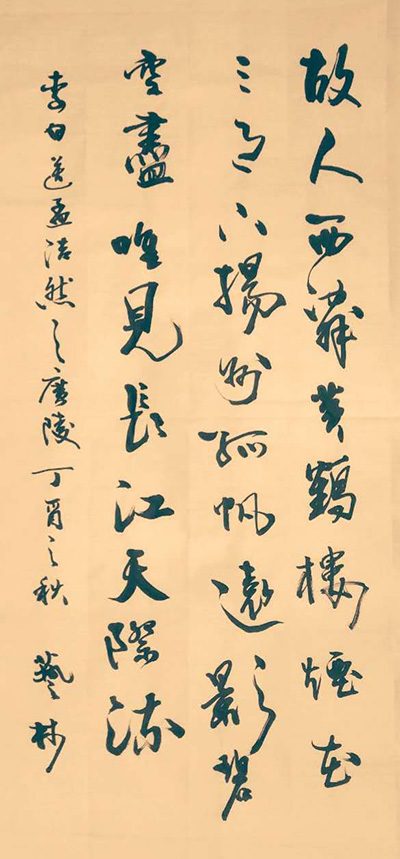 故人西辭黄鶴樓煙花
三月下揚州孤帆遠影碧
空盡唯見長江天際流
李白送孟浩然之廣陵丁酉之秋 藝林